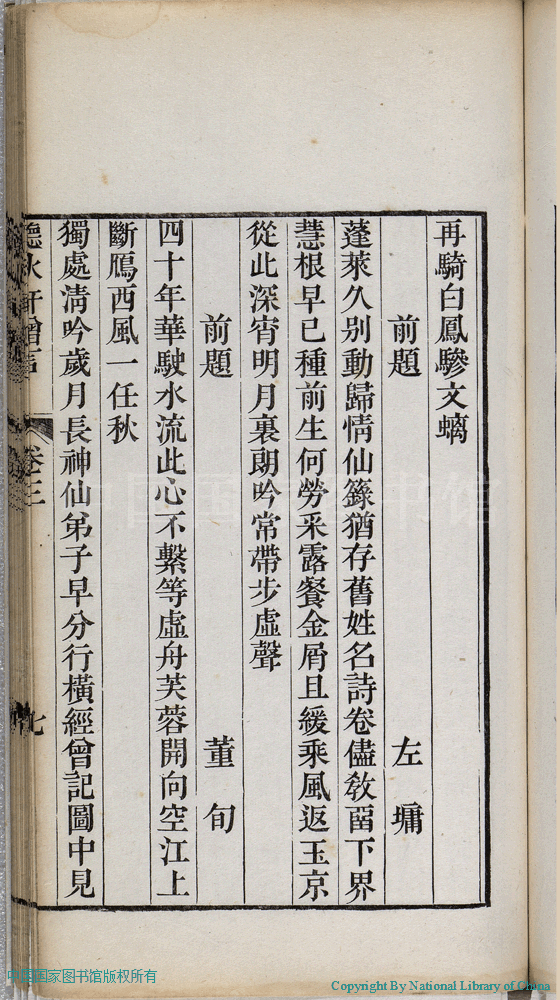 再騎白鳳驂文螭
前題 左墉
蓬萊久别動歸情仙籙猶存舊姓名詩卷儘敎畱下界
慧根早已種前生何勞采露餐金屑且緩乘風返玉京
從此深宵明月裏朗吟常帶步虛聲
前題 董旬
四十年華駛水流此心不繫等虛舟芙蓉開向空江上
斷鴈西風一任秋
獨處淸吟歲月長神仙弟子早分行橫經曾記圖中見
聽秋軒贈言 卷三 七
中国国家图书馆
中国国家图书馆版权所有
Copyright By National Library of China